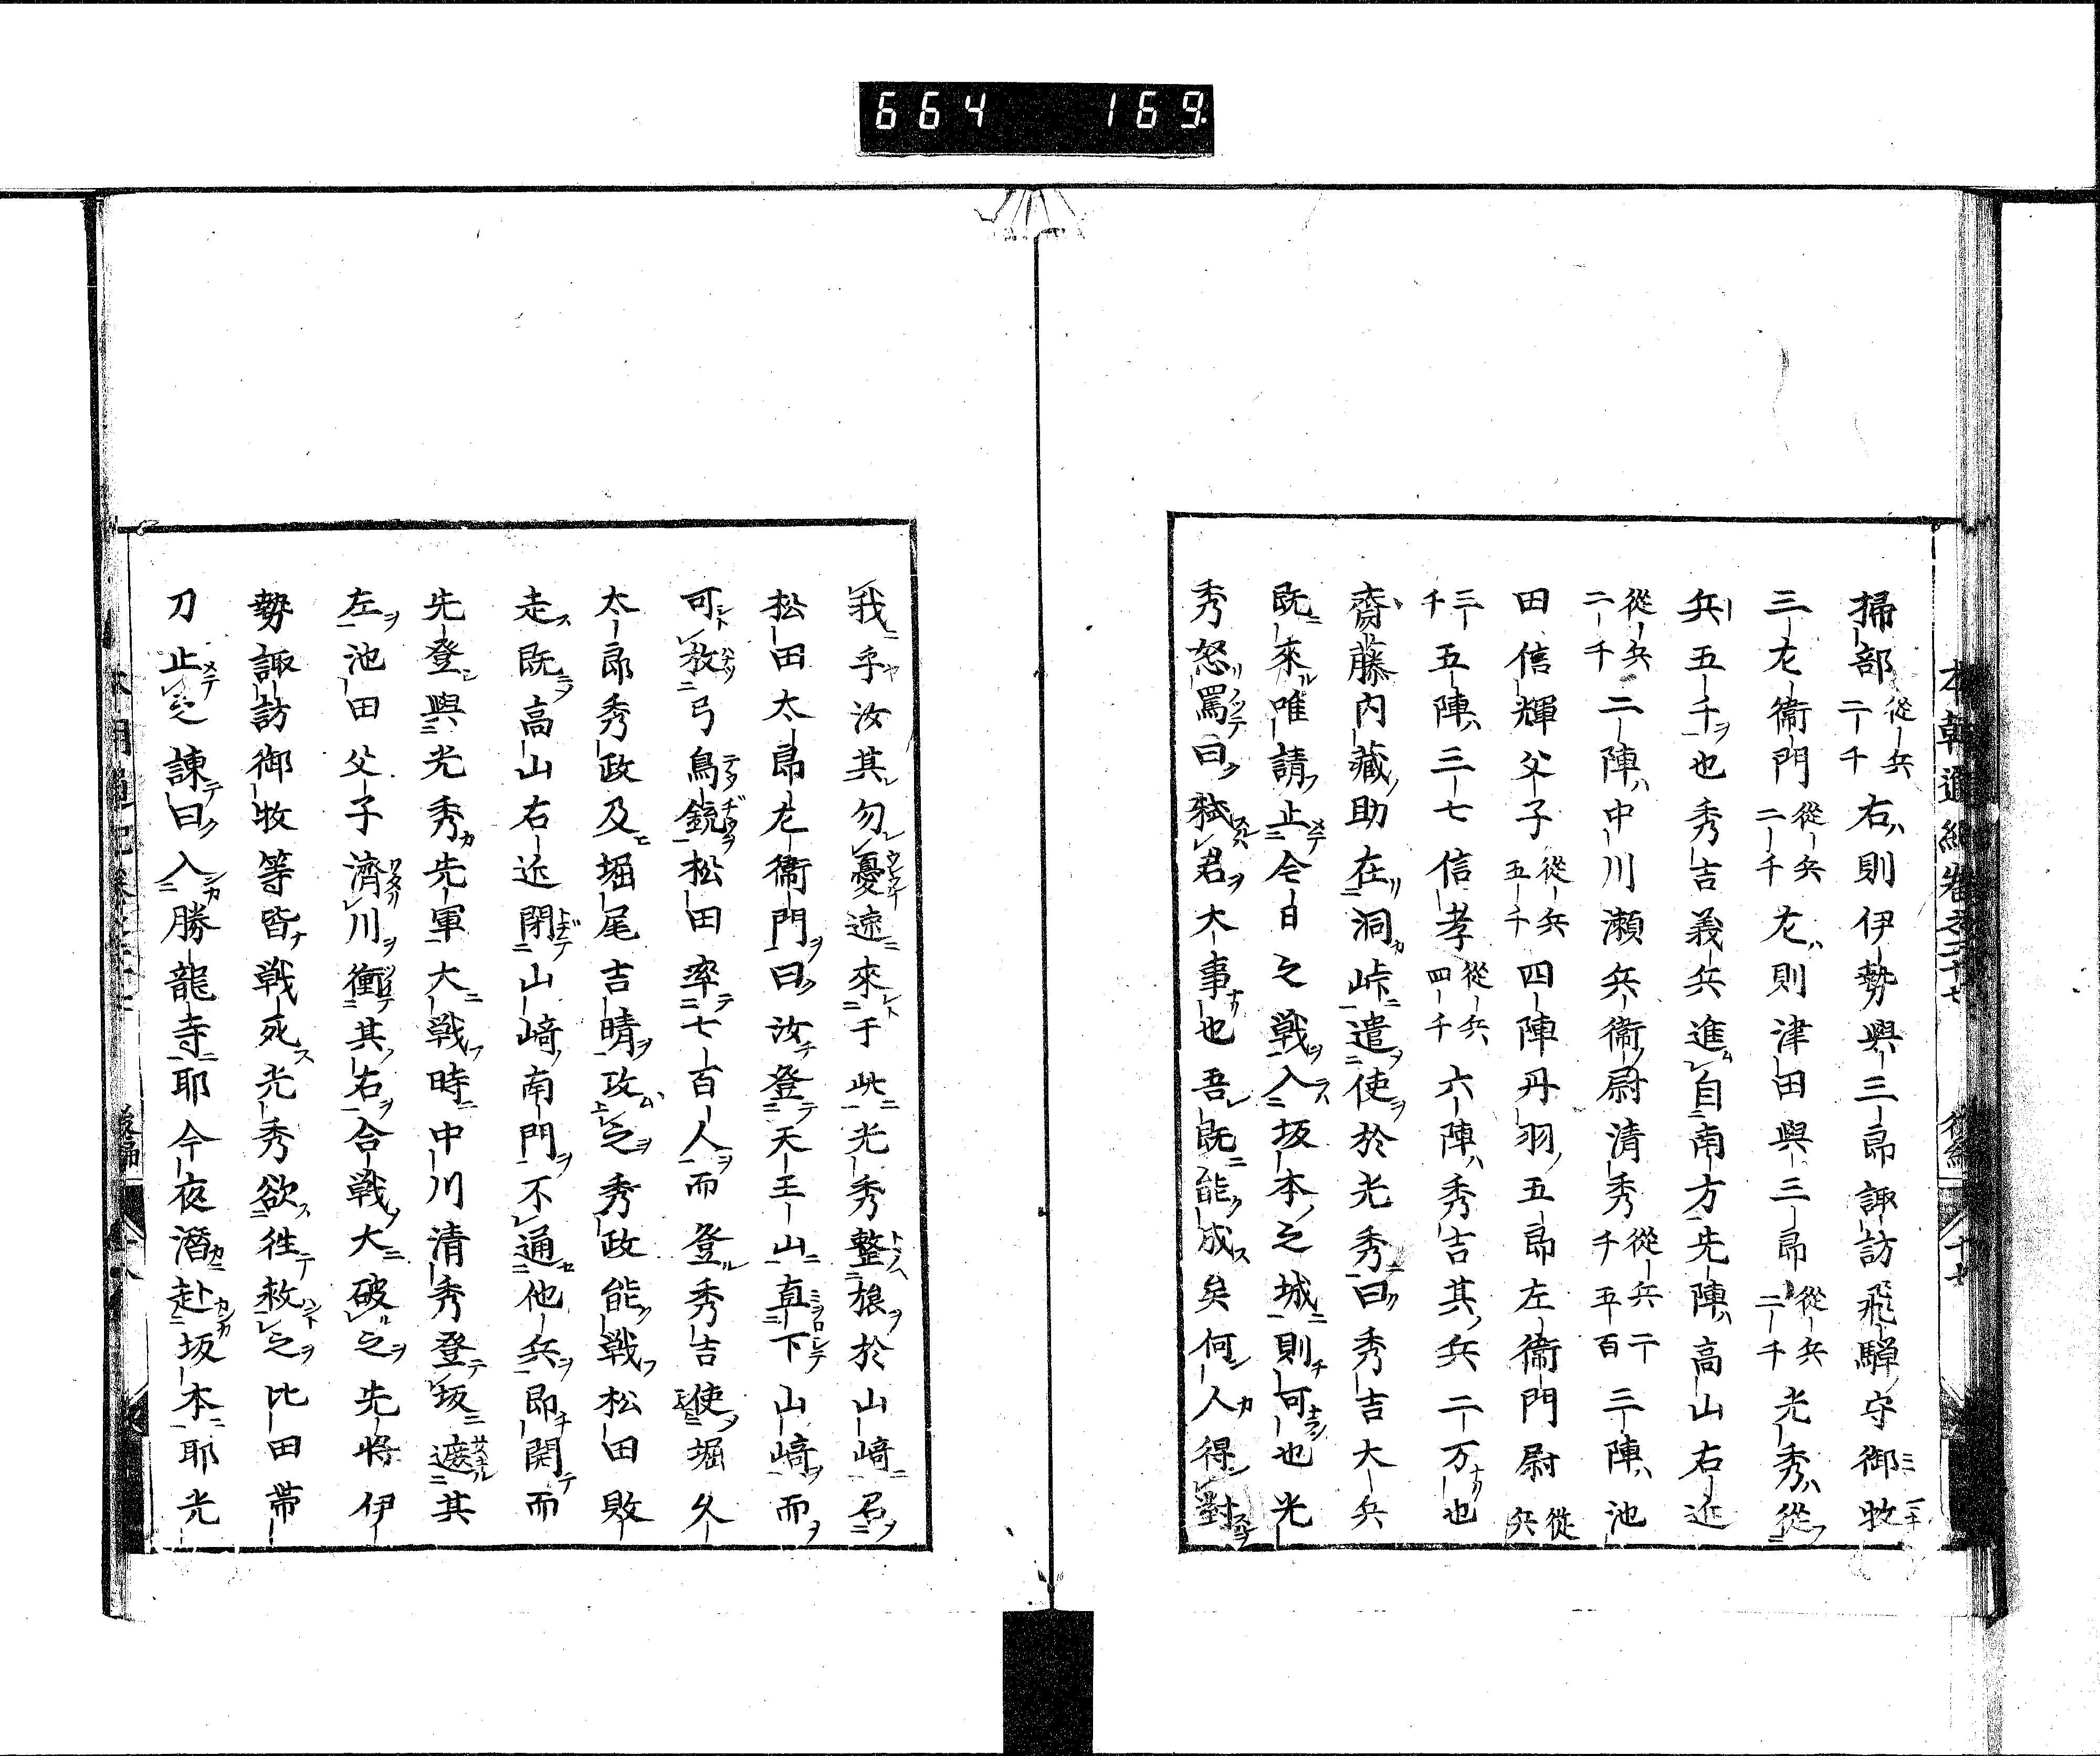 664 169
本朝通紀卷之二十七 後編 十七
掃部 從兵二千 右則伊勢與三郎諏訪飛騨守御牧
三左衞門 從兵二千 左則津田與三郎 從兵二千 光秀從
兵五千也秀吉義兵進自南方先陣高山右近
從兵二千 二陣中川瀬兵衞尉清秀 從兵二千五百 三陣池
田信輝父子 從兵五千 四陣丹羽五郎左衞門尉 從兵
三千 五陣三七信孝 從兵四千 六陣秀吉其兵二万也
齋藤内藏助在洞峠遣使於光秀曰秀吉大兵
既來唯請止今日之戦入坂本之城則可也光
秀怒罵曰弑君大事也吾既能成矣何人得對
我乎汝其勿憂速來于此光秀整旅於山﨑召
松田太郎左衞門曰汝登天王山直下山﨑而
可放弓鳥銃松田率七百人而登秀吉使堀久
太郎秀政及堀尾吉晴攻之秀政能戦松田敗
走既高山右近閉山﨑南門不通他兵即開而
先登與光秀先軍大戦時中川清秀登坂遮其
左池田父子濟川衝其右合戦大破之先將伊
勢諏訪御牧等皆戦死光秀欲徃救之比田帶
刀止之諌曰入勝龍寺耶今夜潛赴坂本耶光
後編